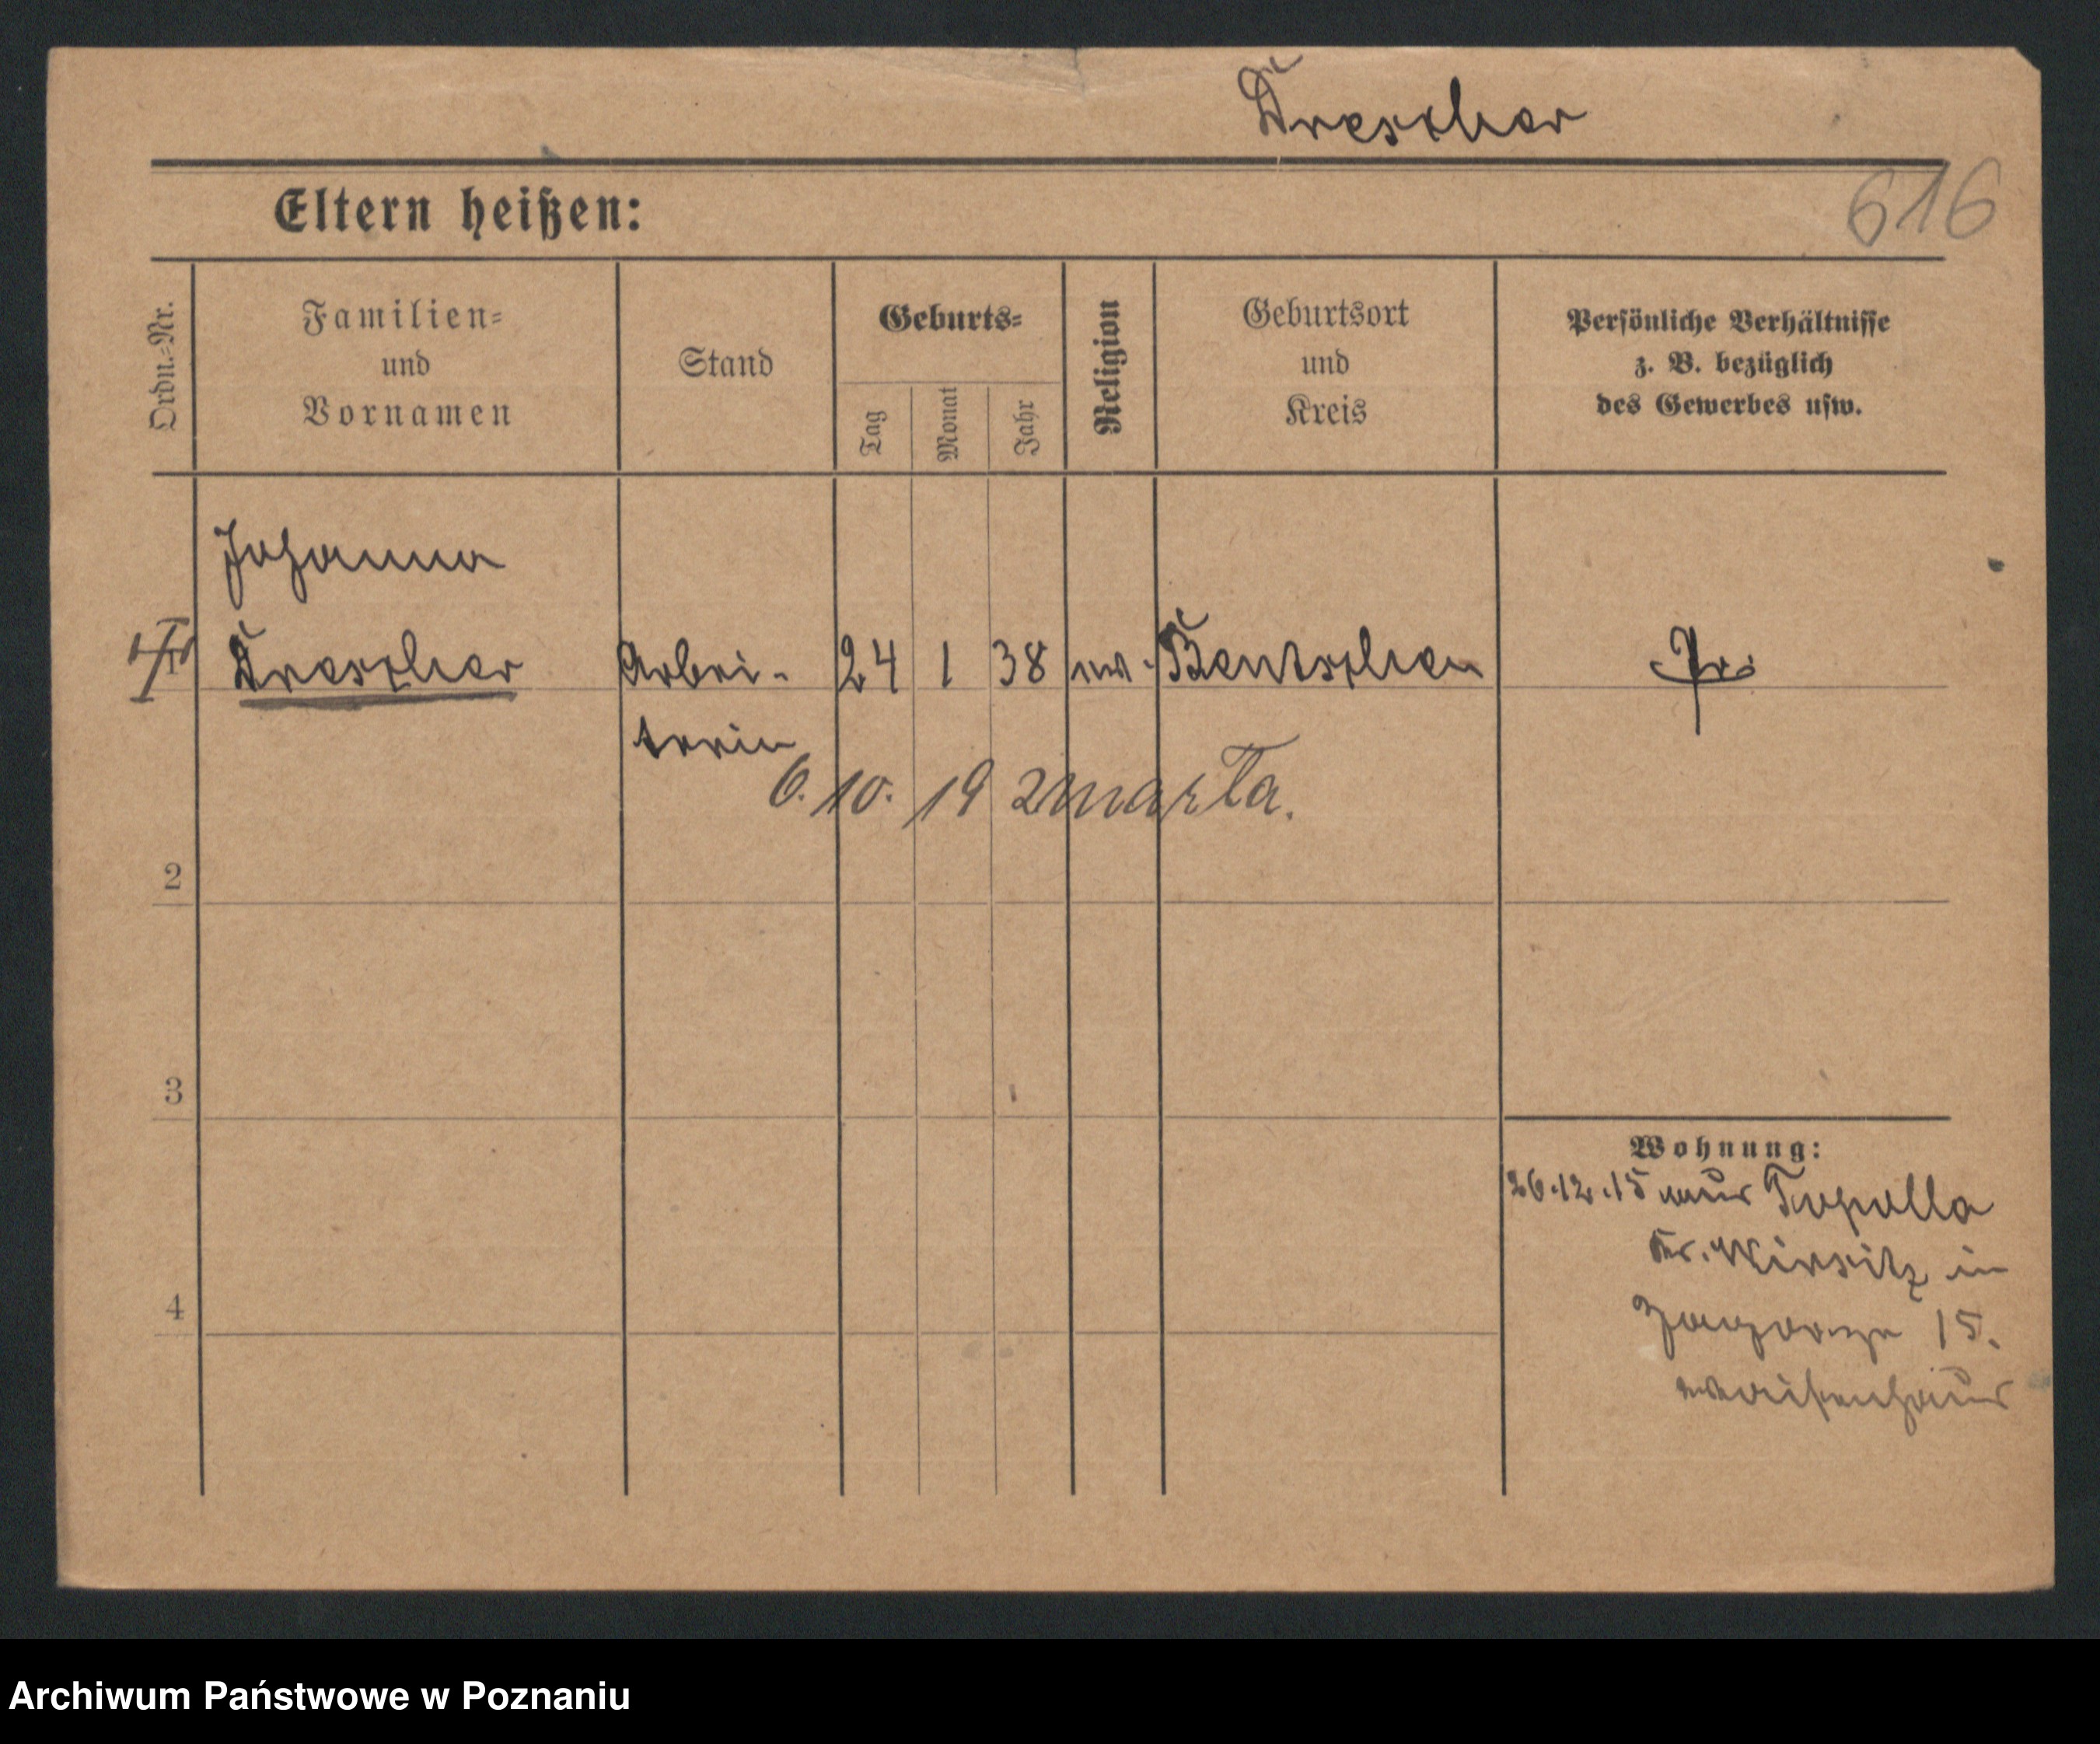 Drescher
616
Eltern heißen:
Ordn.-Nr.
Familien-
und
Vornamen
Stand
Geburts-
Tag
Monat
Jahr
Religion
Geburtsort
und
Kreis
Persönliche Verhältnisse
z. B. bezüglich
des Gewerbes usw.
Johanna
Drescher Arbei- 24 1 38 Bentschen Pr.
terin
6. 10. 19 zmarła.
2
3
4
Wohnung:
26.12.15 aus Topolla
Kr. Wirsitz in
15.
Waisenhaus
Archiwum Państwowe w Poznaniu